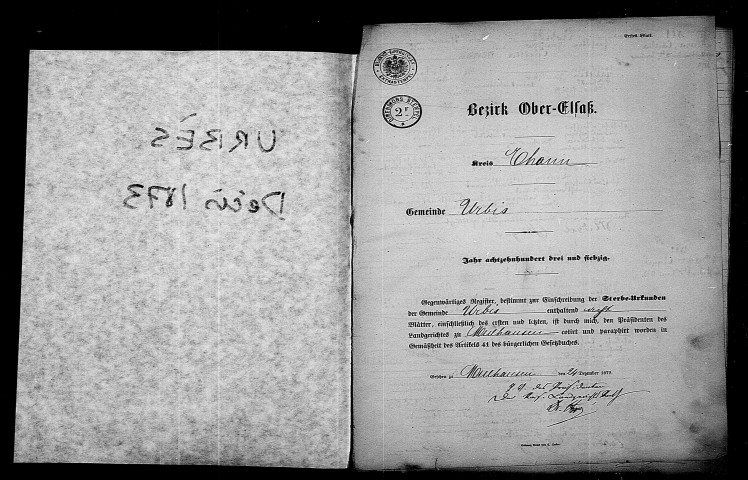 URBÈS
Décès 1873
Erstes Blatt.
2
Bezirk Ober-Elsaß.
Kreis Thann
Gemeinde Urbis
Jahr achtzehnhundert drei und siebzig.
Gegenwärtiges Register, bestimmt zur Einschreibung der Sterbe-Urkunden
der Gemeinde Urbis enthaltend
Blätter, einschließlich des ersten und letzten, ist durch mich, den Präsidenten des
Landgerichtes zu Mülhausen cotirt und paraphirt worden in
Gemäßheit des Artikels 41 des bürgerlichen Gesetzbuches.
Gesehen zu Mülhausen den 24 Dezember 1872.